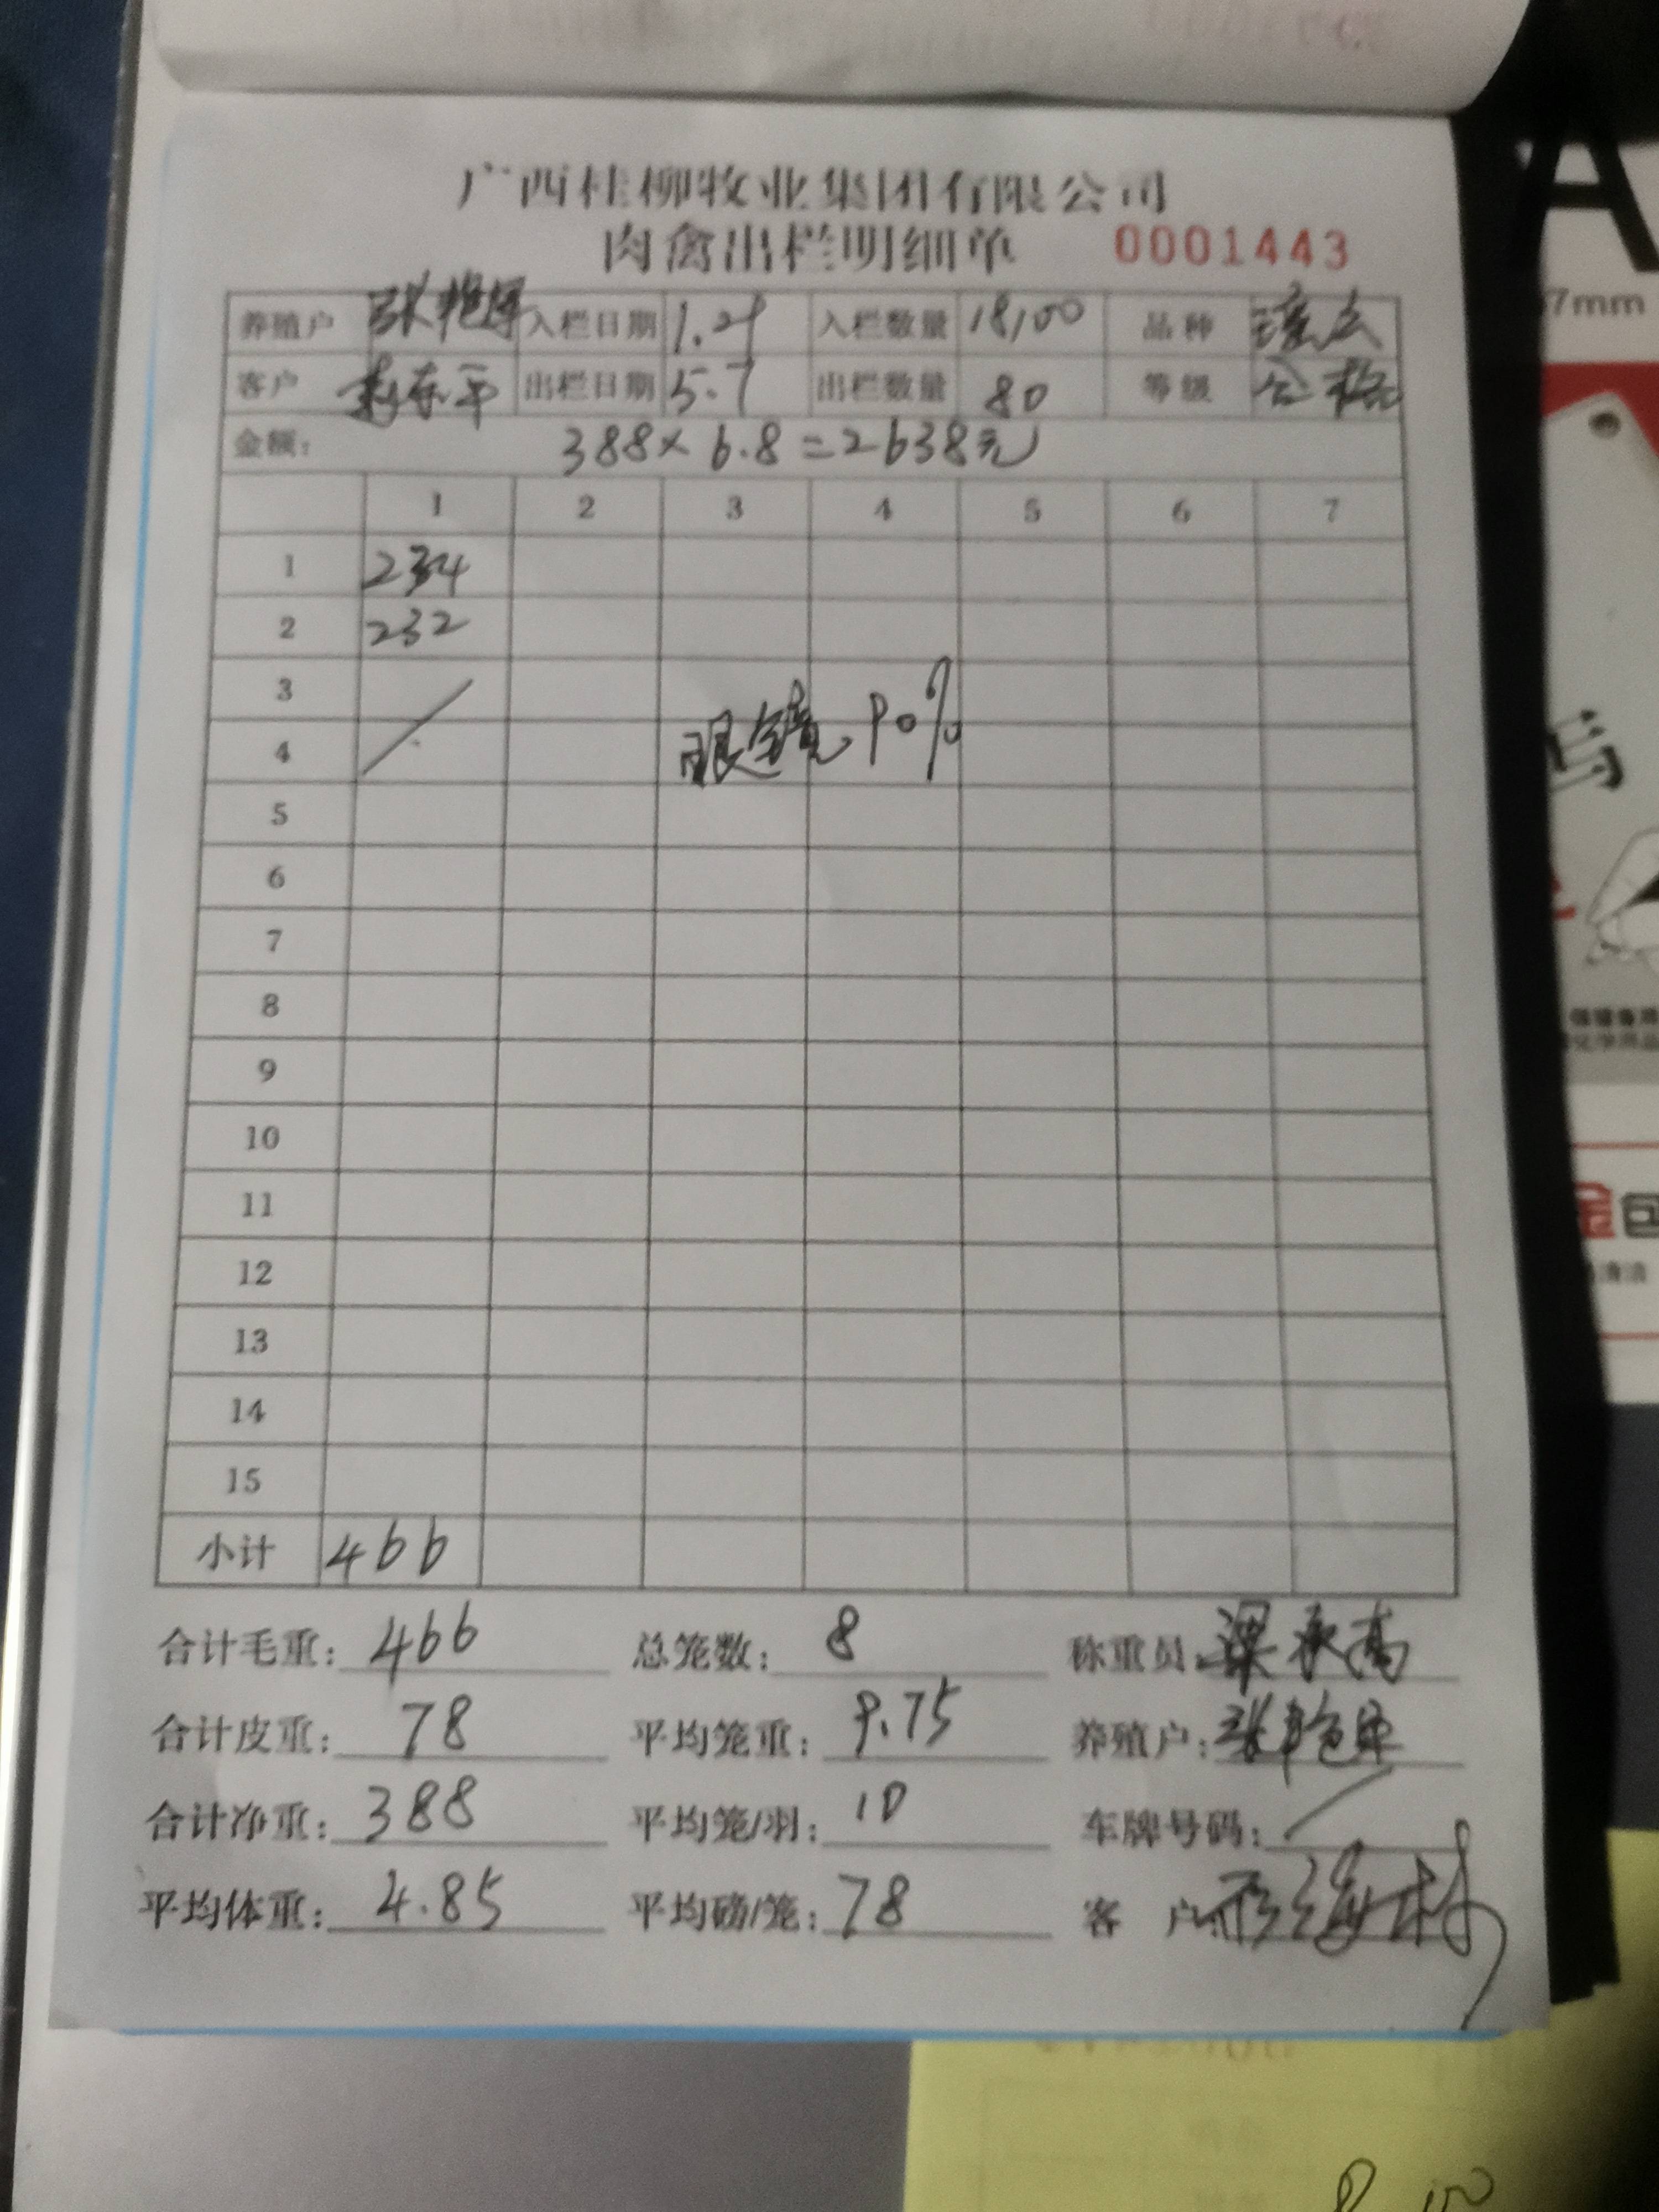 广西桂柳牧业集团有限公司
肉禽出栏明细单 0001443
养殖户 张艳军 入栏日期 1.21 入栏数量 18100 品种
客户 东平 出栏日期 5.7 出栏数量 80 等级 合格
金额: 388×6.8=2638元
1 2 3 4 5 6 7
1 234
2 232
3
4 眼镜90%
5
6
7
8
9
10
11
12
13
14
15
小计 466
合计毛重: 466 总笼数: 8 称重员: 梁永高
合计皮重: 78 平均笼重: 9.75 养殖户: 张艳军
合计净重: 388 平均笼/羽: 10 车牌号码:
平均体重: 4.85 平均磅/笼: 78 客 户:
A
7mm
写
金包
清洁